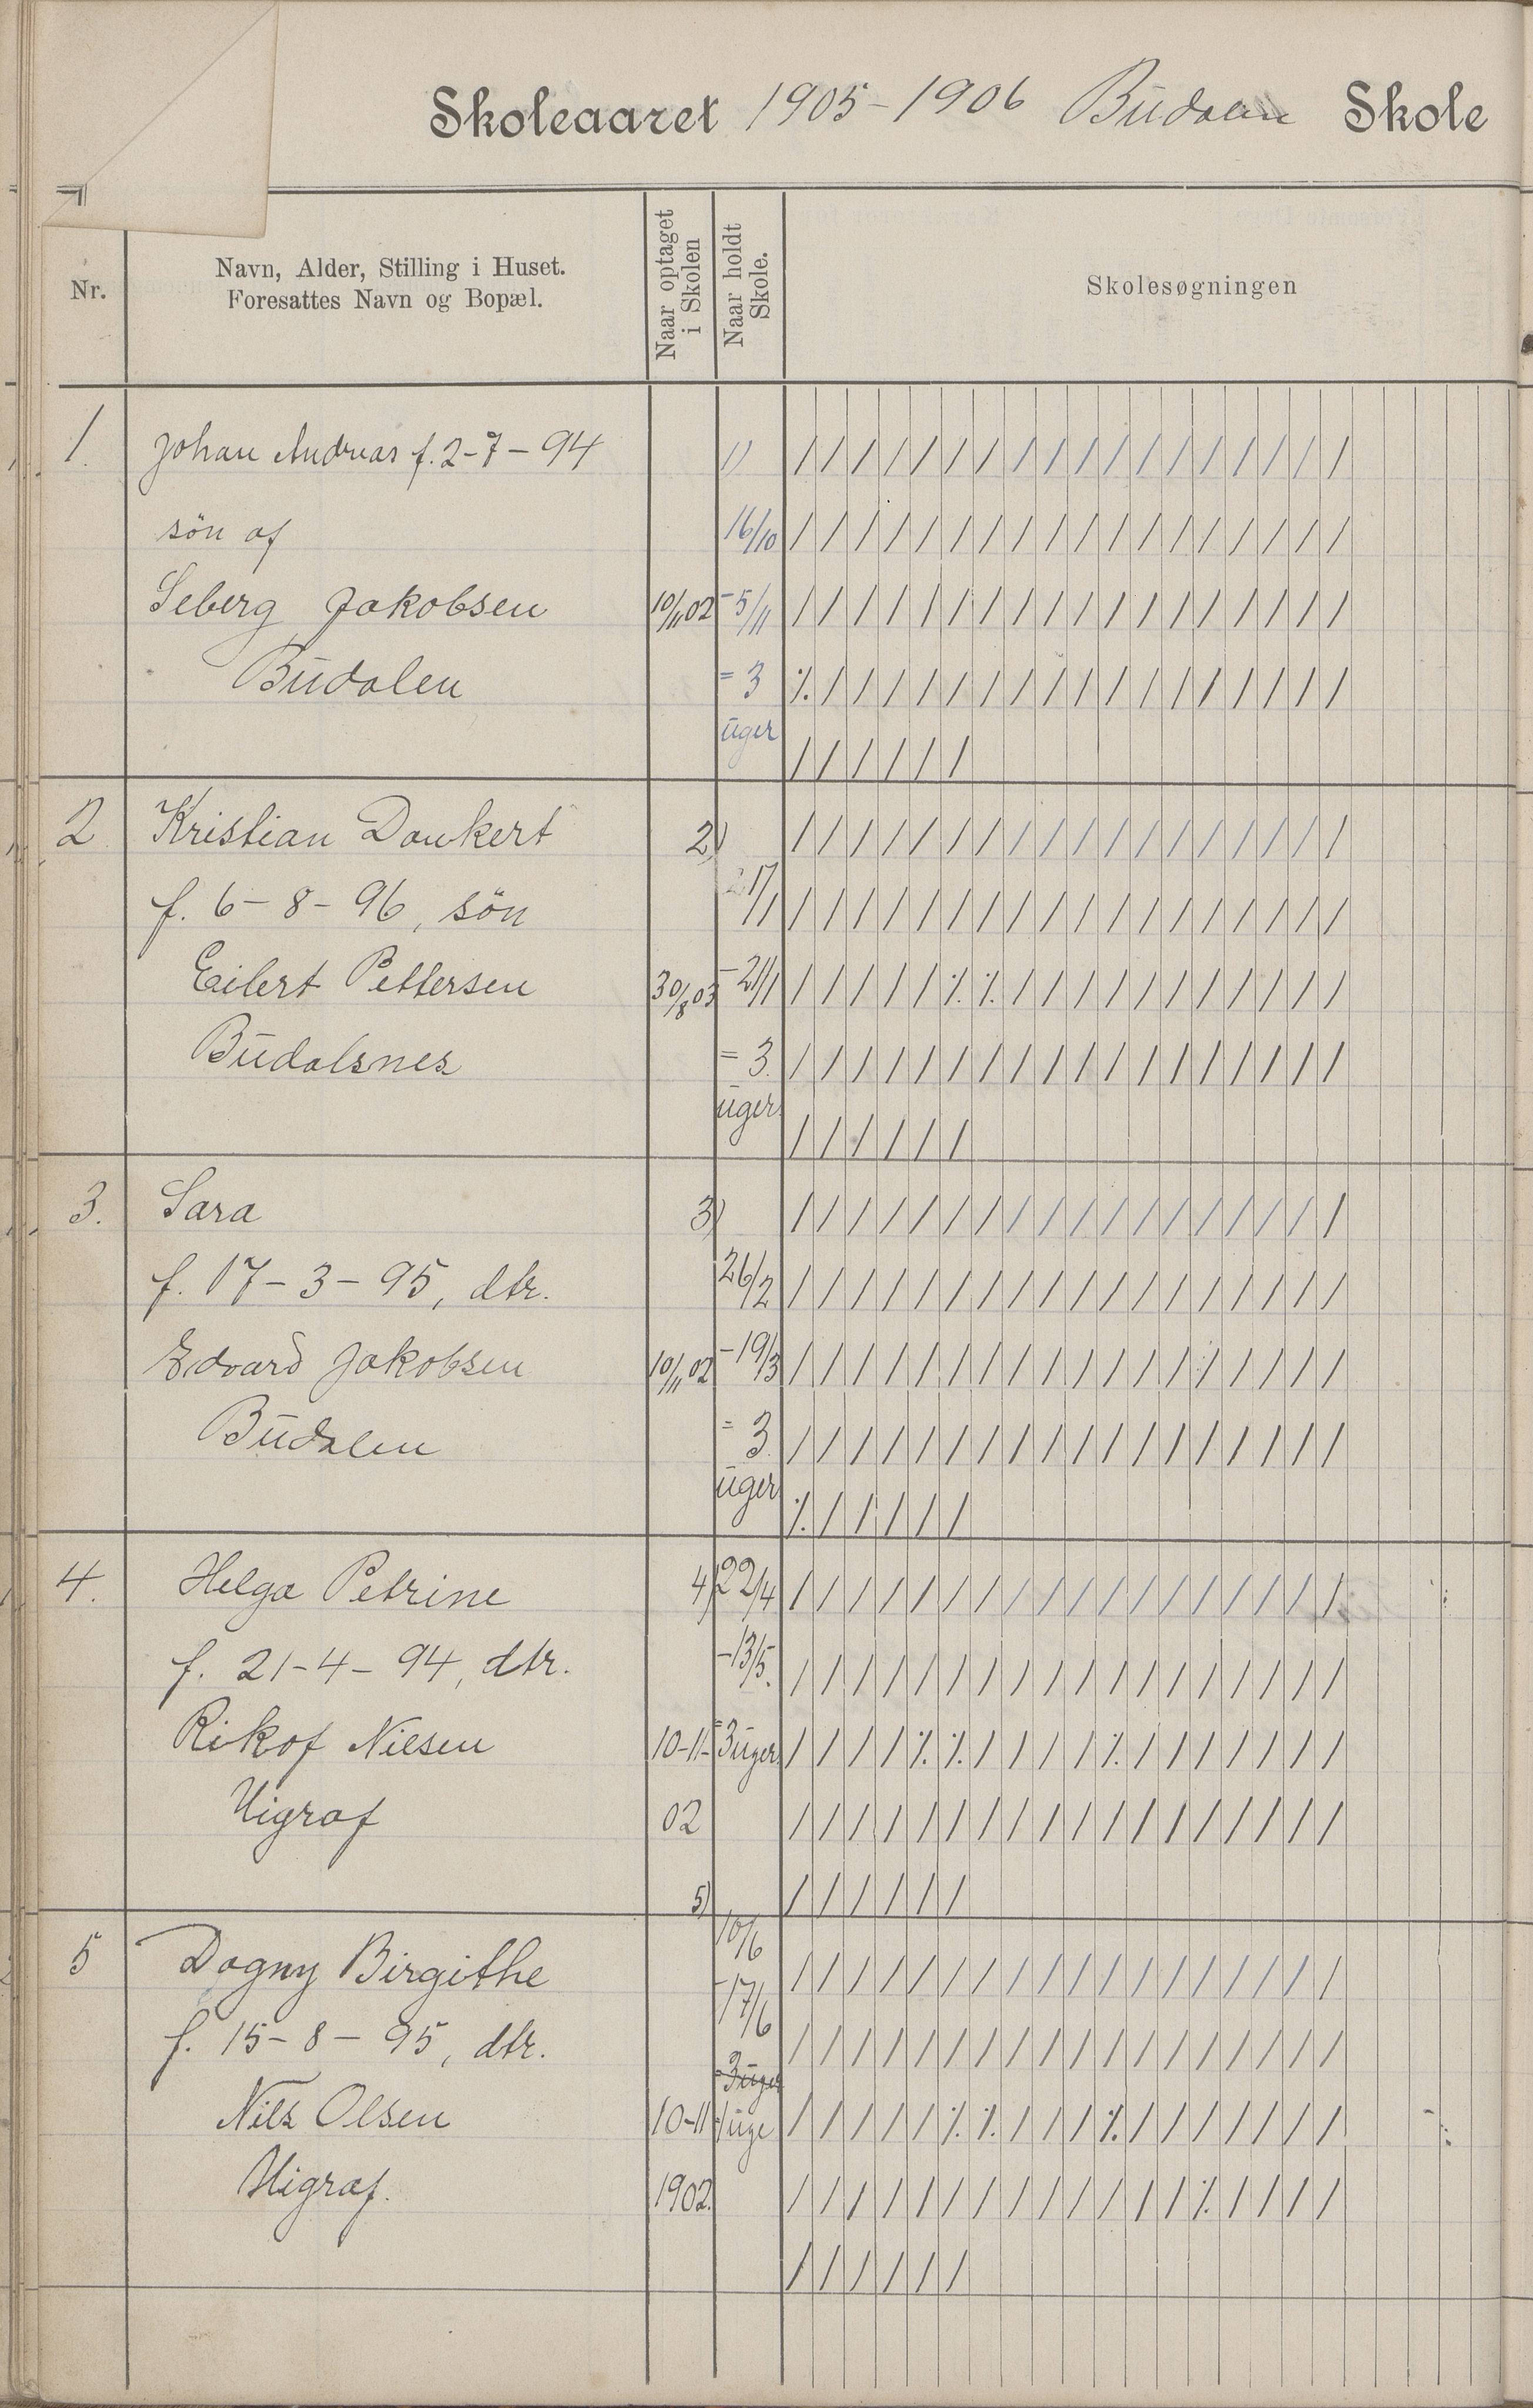 Skoleaaret 1905-1906 Büdalen Skole
Nr.
Navn, Alder, Stilling i Huset.
Foresattes Navn og Bopæl.
Naar optaget
i Skolen
Naar holdt
Skole.
Skolesøgningen
1. Johan Andreas f. 2-7-94 1) / / / / / / / / / / / / / / / / / /
sön af 16/10 / / / / / / / / / / / / / / / / / /
Seberg Jakobsen 10/11 02 -5/11 / / / / / / / / / / / / / / / / / /
Büdalen = 3 ⁒ / / / / / / / / / / / / / / / / /
üger / / / / / /
2 Kristian Donkert 2) / / / / / / / / / / / / / / / / / /
f. 6-8-96, sön 1/1 / / / / / / / / / / / / / / / / / /
Eilert Pettersen 30/8 03 -21/1 / / / / / ⁒ ⁒ / / / / / / / / / / /
Büdalsnes = 3. / / / / / / / / / / / / / / / / / /
üger. / / / / / /
3. Sara 3) / / / / / / / / / / / / / / / / / /
f. 17-3-95, dtr. 26/2 / / / / / / / / / / / / / / / / / /
Edvard Jakobsen 10/11 02 -19/3 / / / / / / / / / / / / / / / / / /
Büdalen = 3. / / / / / / / / / / / / / / / / / /
üger ⁒ / / / / /
4. Helga Petrine 4) 22/4 / / / / / / / / / / / / / / / / / /
f. 21-4-94, dtr. -13/5. / / / / / / / / / / / / / / / / / /
Rikof Nilsen 10-11- =3üger. / / / / ⁒ ⁒ / / / / ⁒ / / / / / / /
Uigraf 02 / / / / / / / / / / / / / / / / / /
5) / / / / / /
5 Dagny Birgithe 10/6 / / / / / / / / / / / / / / / / / /
f. 15-8-95, dtr. -17/6 / / / / / / / / / / / / / / / / / /
=3üger
Nils Olsen 10-11 1üge / / / / / ⁒ ⁒ / / / ⁒ / / / / / / /
Uigraf. 1902. / / / / / / / / / / / / / ⁒ / / / /
/ / / / / /